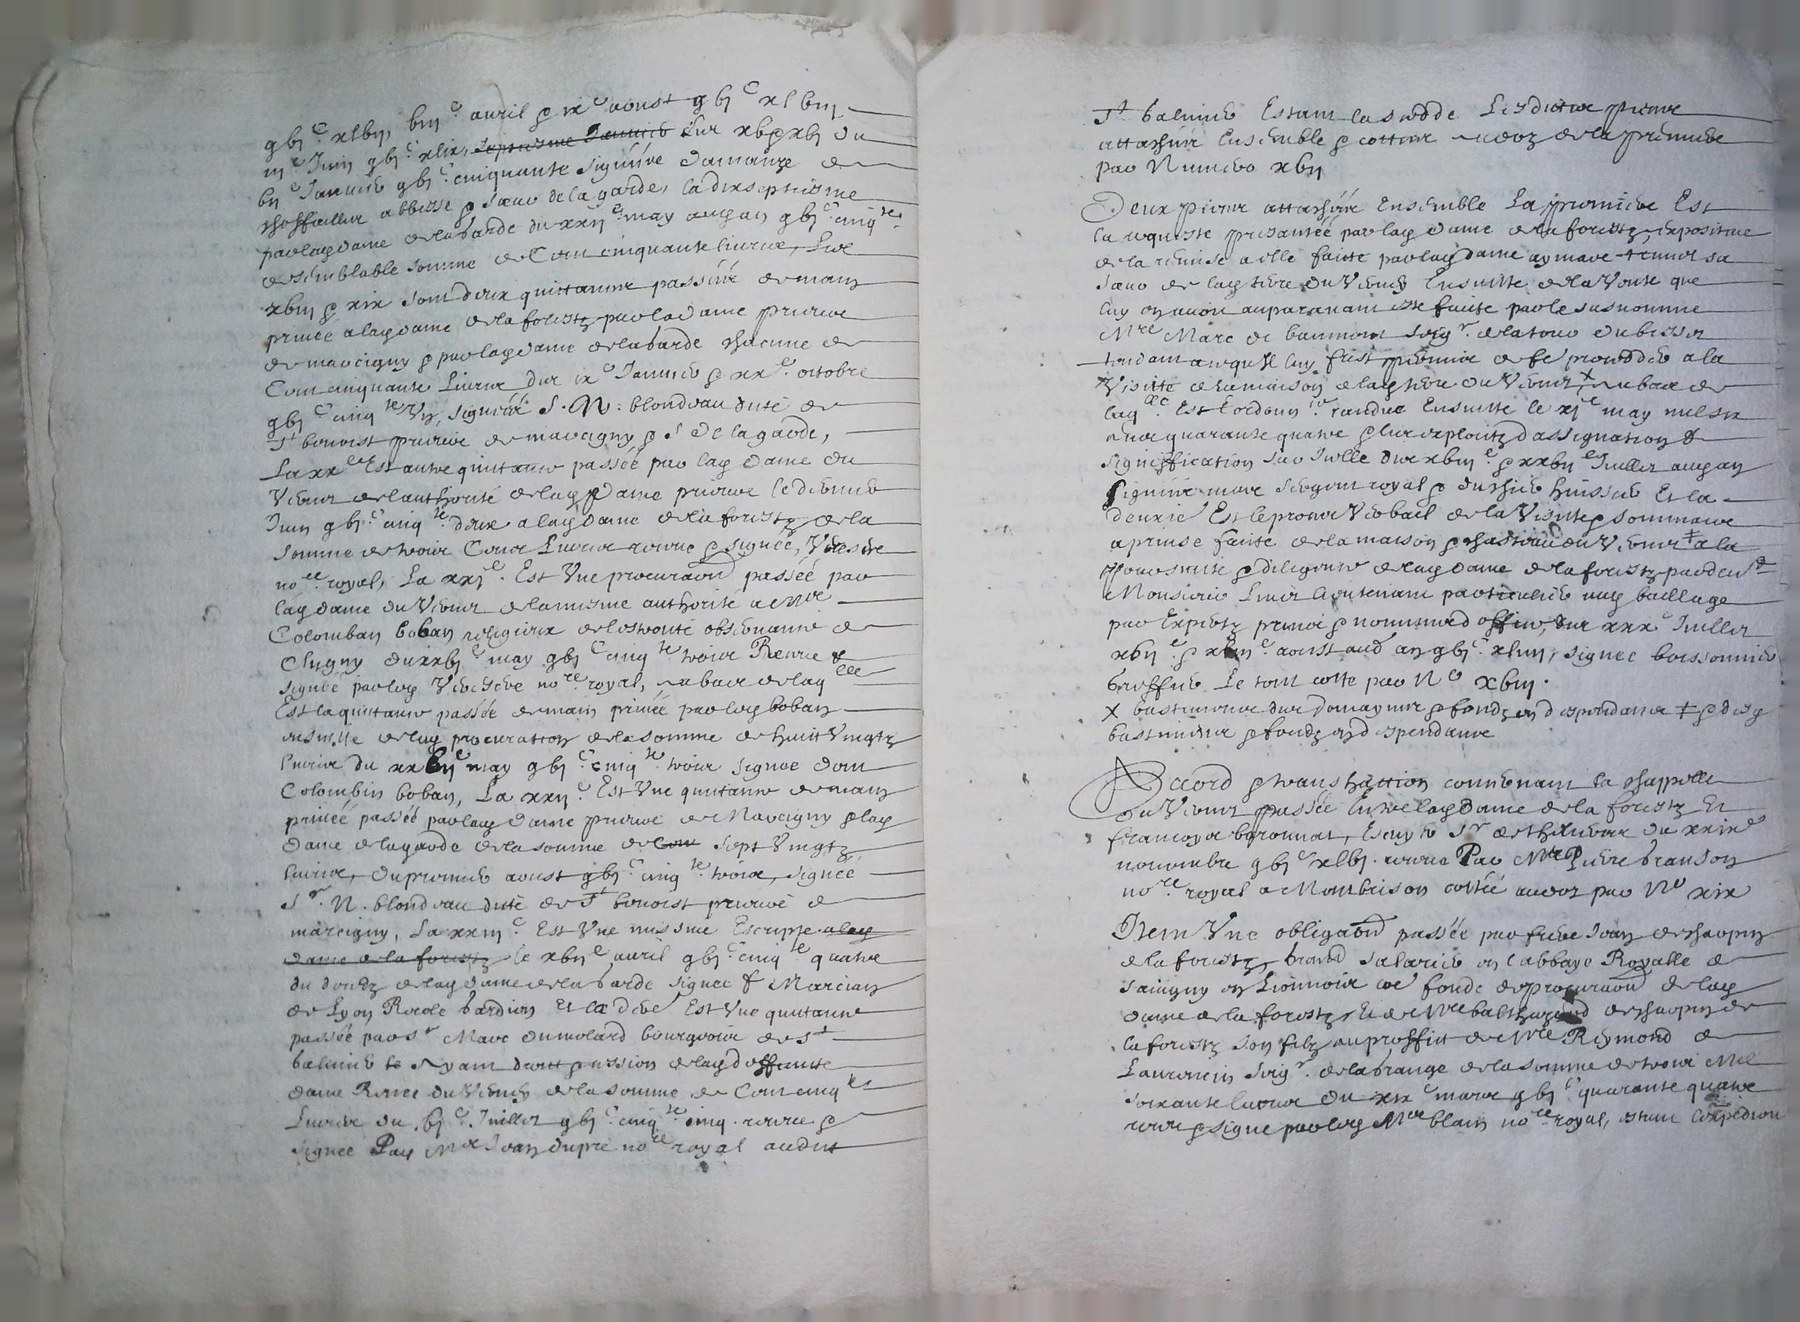 gbj c xlbij, biij e auril & ix e aoust gbj c xlbiij
iij e Juin gbj c xlix, Les xb & xbj du
bij e Januier gbj c cinquante signées damanze de
choffailler abbesse & sœur de la garde, la dixseptiesme
par lad dame de la barde du xxij e may aud an gbj c cinq te
de semblable somme de Cent cinquante liures, Les
xbiij & xix sont deux quittances passées de main
priuée a lad dame de la forestz par la dame prieure
de marcigny & par lad dame de la barde chacune de
Cent cinquante Liures des ix e Januier & xx e octobre
gbj c cinq te Vn, signées S. N. blondeau dute de
St benoist prieure de marcigny & S de la garde,
La xx e Est autre quittance passée par lad dame du
Vernet de lauthorité de lad Dame prieure le dernier
Juin gbj c cinq te deux a lad dame de la forestz de la
somme de trois Cens Liures receue & signée,
no re royal, La xxj e Est Vne procuraon passée par
lad dame du Vernet de la mesme authorité a Mre
Colomban boban religieux de lestroite obseruance de
Clugny du xxbj e may gbj c cinq te trois Receue &
signée par led no re royal, au bas de laq lle
Est la quittance passée de main priuée par led boban
ensuitte de lad procuration de la somme de huit Vingtz
liures du xxbij e may gbj c cinq te trois signée dom
Colombin boban, La xxij e Est Vne quittance de main
priuée passée par lad Dame prieure de Marcigny & lad
Dame de la garde de la somme de Cent Sept Vingtz
liures, du premier aoust gbj c cinq te trois, signée
Sr. N. blondeau dute de St benoist prieure de
marcigny, La xxiij e Est Vne missiue Escripte a lad
dame de la forestz le xbij e auril gbj c cinq te quatre
de lad dame de la barde signée & Marcian
de Lyon Et la Est Vne quittance
passée par Sr Marc dumolard bourgeois de St
balmier ayant droit & cession de lad deffuncte
dame Renée du Vernet de la somme de Cent cinq te
Liures du bj e Juillet gbj c cinq te cinq receue &
signée Par Mre Jean dupre no re royal audit
St balmier Estant la Lesdictes pieces
attachées Ensemble & cottées au doz de la premiere
par Numero xbij
Deux pieces attachées Ensemble La premiere Est
la requeste presentée par lad dame de la forestz, expositiue
de la remise a elle faite par lad dame aymare sa
sœur de lad terre du Vernet Ensuitte de la Vente que
luy en auoit auparauant esté faite par le susnommé
Mre Marc de beaumont Seigr. de la tour du
tendant a ce qu'il luy fust permis de fe proceder a la
Visitte de la maison de lad terre du Vernet, X au bas de
laq lle Est lordonn ce rendue Ensuitte le xj e may mil six
cens quarante quatre & les exploitz dassignation &
signiffication sur Icelle des xbiij e & xxbij e Juillet aud an
signées sergent royal & huissier Et la
deuxie Est le procez Verbail de la Visitte & sommaire
aprinse faite de la maison & chasteau du Vernet ‡ a la
poursuite & diligence de lad dame de la forestz par deu t
Monsieur lieutenant particulier aud baillage
par Expertz prins & nommes d'office, des xxx e Juillet
xbij e & e aoust aud an gbj c xliiij, signée boissonnier
greffier Le tout cotté par N o xbiij.
X bastimens des domaynes & fondz en despendans ‡ & des
bastimens & fondz en despendans
Accord & transhaction contenant la chappelle
du Vernet passée Entre lad Dame de la forestz Et
francoys baronnat, Escuyer Sr de du xxix e
nouembre gbj c xlbj. receue Par Mre Pierre branson
no re royal a Montbrison cottée au doz par No xix
Item Vne obligaon passée par frere Jean de chaugny
de la forestz, Salarier en labbaye Royalle de
sauigny en Lionnois co e fondé de procuraon de lad
dame de la forestz, Et de Mre balthazard de chaugny de
la forestz son filz au proffit de Mre Reymond de
Laurencin Seigr. de la grange de la somme de trois Mil
soixante liures du xix e mars gbj c quarante quatre
receue & signée par led Mre blain no re royal, estant Lexpedion